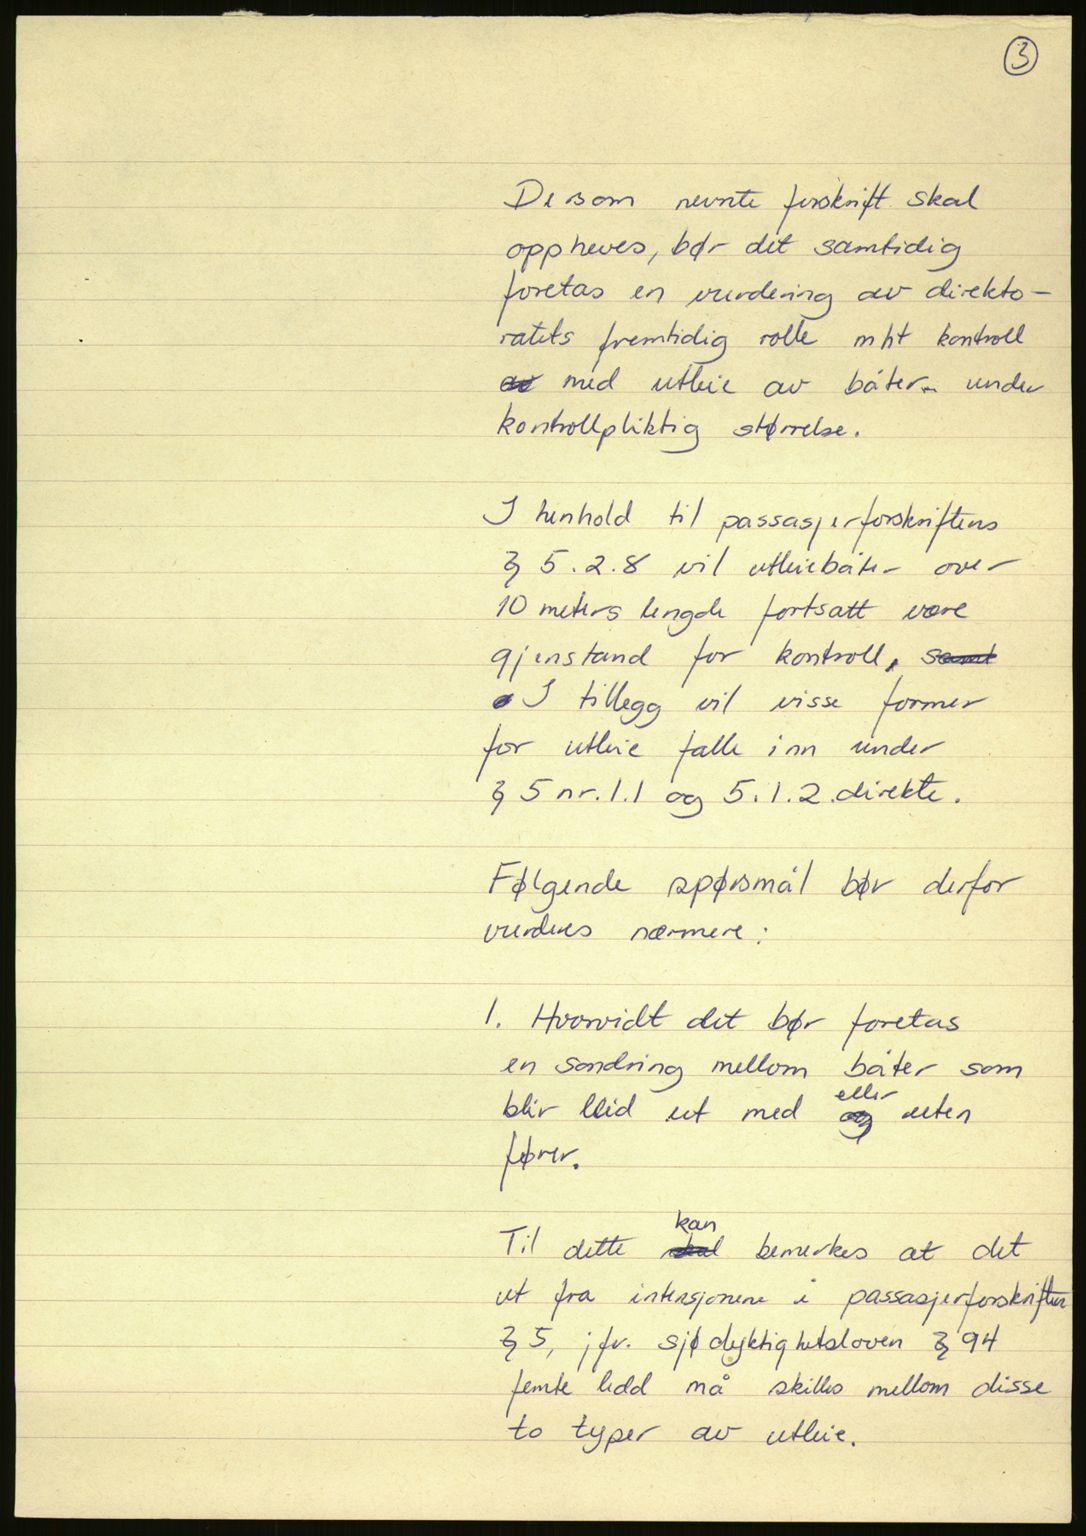 3
Dersom nevnte forskrift skal
oppheves, bør det samtidig
foretas en vurdering av direkto-
ratets fremtidig rolle mht kontroll
av med utleie av båter under
kontrollpliktig størrelse.
I henhold til passasjerforskriftens
§ 5.2.8 vil utleiebåter over
10 meters lengde fortsatt være
gjenstand for kontroll, samt
I tillegg vil visse former
for utleie falle inn under
§ 5 nr. 1.1 og 5.1.2. direkte.
Følgende spørsmål bør derfor
vurderes nærmere:
1. Hvorvidt det bør foretas
en sondring mellom båter som
eller
blir leid ut med og uten
fører.
kan
Til dette skal bemerkes at det
ut fra intensjonene i passasjerforskriften
§ 5, jfr. sjødyktighetsloven § 94
femte ledd må skilles mellom disse
to typer av utleie.